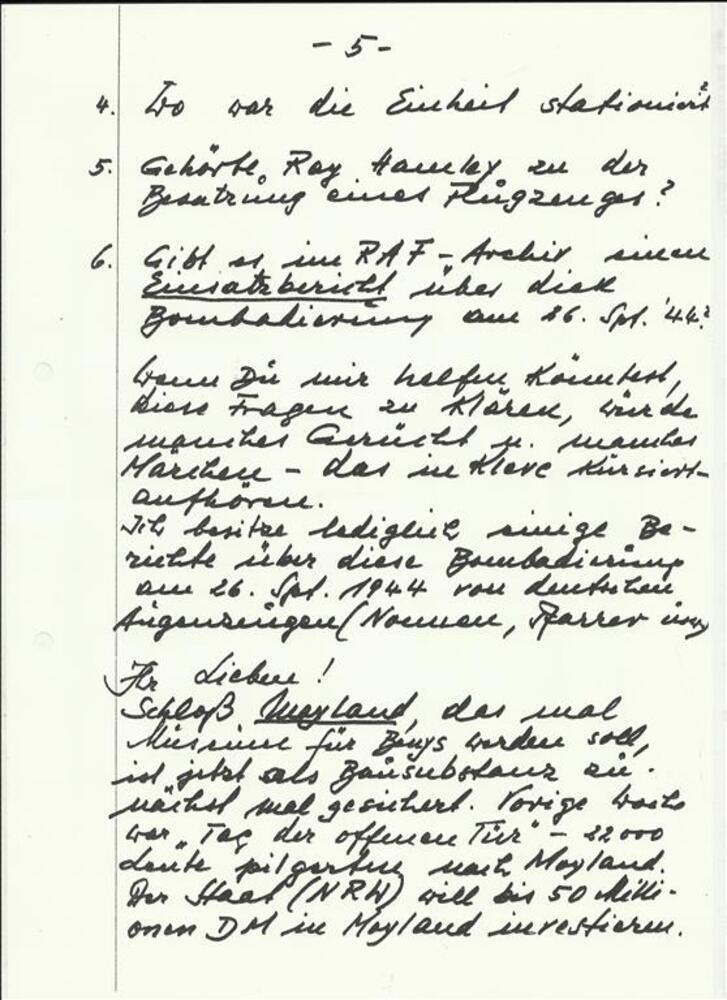 - 5 -
4. Wo war die Einheit stationiert?
5. Gehörte Ray Hamley zu der
Besatzung eines Flugzeuges?
6. Gibt es im RAF-Archiv einen
Einsatzbericht über diese
Bombadierung am 26. Spt. '44?
Wenn Du mir helfen könntest,
diese Fragen zu klären, würde
manches Gerücht u. manches
Märchen - das in Kleve kursiert -
aufhören.
Ich besitze lediglich einige Be-
richte über diese Bombadierung
am 26. Spt. 1944 von deutschen
Augenzeugen (Nonnen, Pfarrer usw)
Ihr Lieben!
Schloß Moyland, das mal
Museum für Beuys werden soll,
ist jetzt als Bausubstanz zu-
nächst mal gesichert. Vorige Woche
war "Tag der offenen Tür" - 22 000
Leute pilgerten nach Moyland.
Der Staat (NRW) will bis 50 Milli-
onen DM in Moyland investieren.